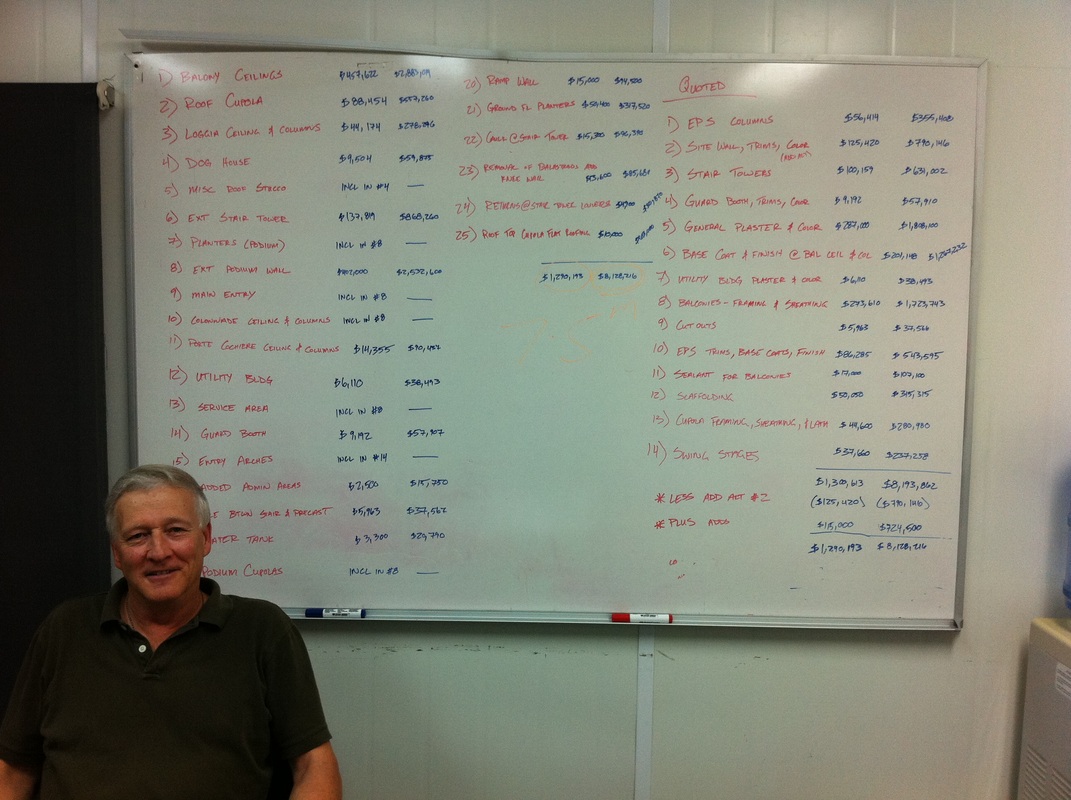 1) BALONY CEILINGS $457,622 $2,883,019
2) ROOF CUPOLA $88,454 $557,260
3) LOGGIA CEILING & COLUMNS $44,174 $278,296
4) DOG HOUSE $9,504 $59,875
5) MISC ROOF STUCCO INCL IN #4 —
6) EXT STAIR TOWER $137,819 $868,260
7) PLANTERS (PODIUM) INCL IN #8 —
8) EXT PODIUM WALL $2,532,600
9) MAIN ENTRY INCL IN #8 —
10) COLONNADE CEILING & COLUMNS INCL IN #8 —
11) PORTE COCHIERE CEILING & COLUMNS $14,355
12) UTILITY BLDG $6,110 $38,493
13) SERVICE AREA INCL IN #8 —
14) GUARD BOOTH $9,192 $57,907
15) ENTRY ARCHES INCL IN #14 —
ADDED ADMIN AREAS $2,500 $15,750
BTWN STAIR & PRECAST $5,963 $37,562
WATER TANK $3,300 $20,790
PODIUM CUPOLAS INCL IN #8 —
20) RAMP WALL $15,000 $94,500
21) GROUND FL PLANTERS $50,400 $317,520
22) @ STAIR TOWER $15,300 $96,390
23) REMOVAL OF BALASTRADS AND
KNEE WALL $13,600 $85,681
24) RETURNS @ STAIR TOWER LOUVERS
25) ROOF TOP CUPOLA FLAT ROOFING $10,000
$1,290,193 $8,128,216
QUOTED
1) EPS COLUMNS $56,414 $355,408
2) SITE WALL, TRIMS, COLOR $125,420 $790,146
3) STAIR TOWERS $100,159 $631,002
4) GUARD BOOTH, TRIMS, COLOR $9,192 $57,910
5) GENERAL PLASTER & COLOR $287,000 $1,808,100
6) BASE COAT & FINISH @ BAL CEIL & COL $201,148 $1,267,232
7) UTILITY BLDG PLASTER & COLOR $6,110 $38,493
8) BALCONIES - FRAMING & SHEATHING $273,610 $1,723,743
9) CUT OUTS $5,963 $37,566
10) EPS TRIMS, BASE COATS, FINISH $86,285 $543,595
11) SEALANT FOR BALCONIES $17,000 $107,100
12) SCAFFOLDING $50,050 $315,315
13) CUPOLA FRAMING, SHEATHING, & LATH $44,600 $280,980
14) SWING STAGES $37,660 $237,258
$1,300,613 $8,193,862
* LESS ADD ALT #2 ($125,420) ($790,146)
* PLUS ADDS $115,000 $724,500
$1,290,193 $8,128,216